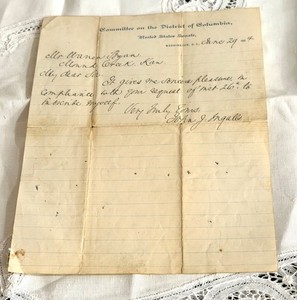 Committee on the District of Columbia,
United States Senate,
June 29
Mound Creek Kan
My Dear Sir
It gives me sincere pleasure in
compliance with your request of
to
subscribe myself
Very Truly Yours
John J. Ingalls